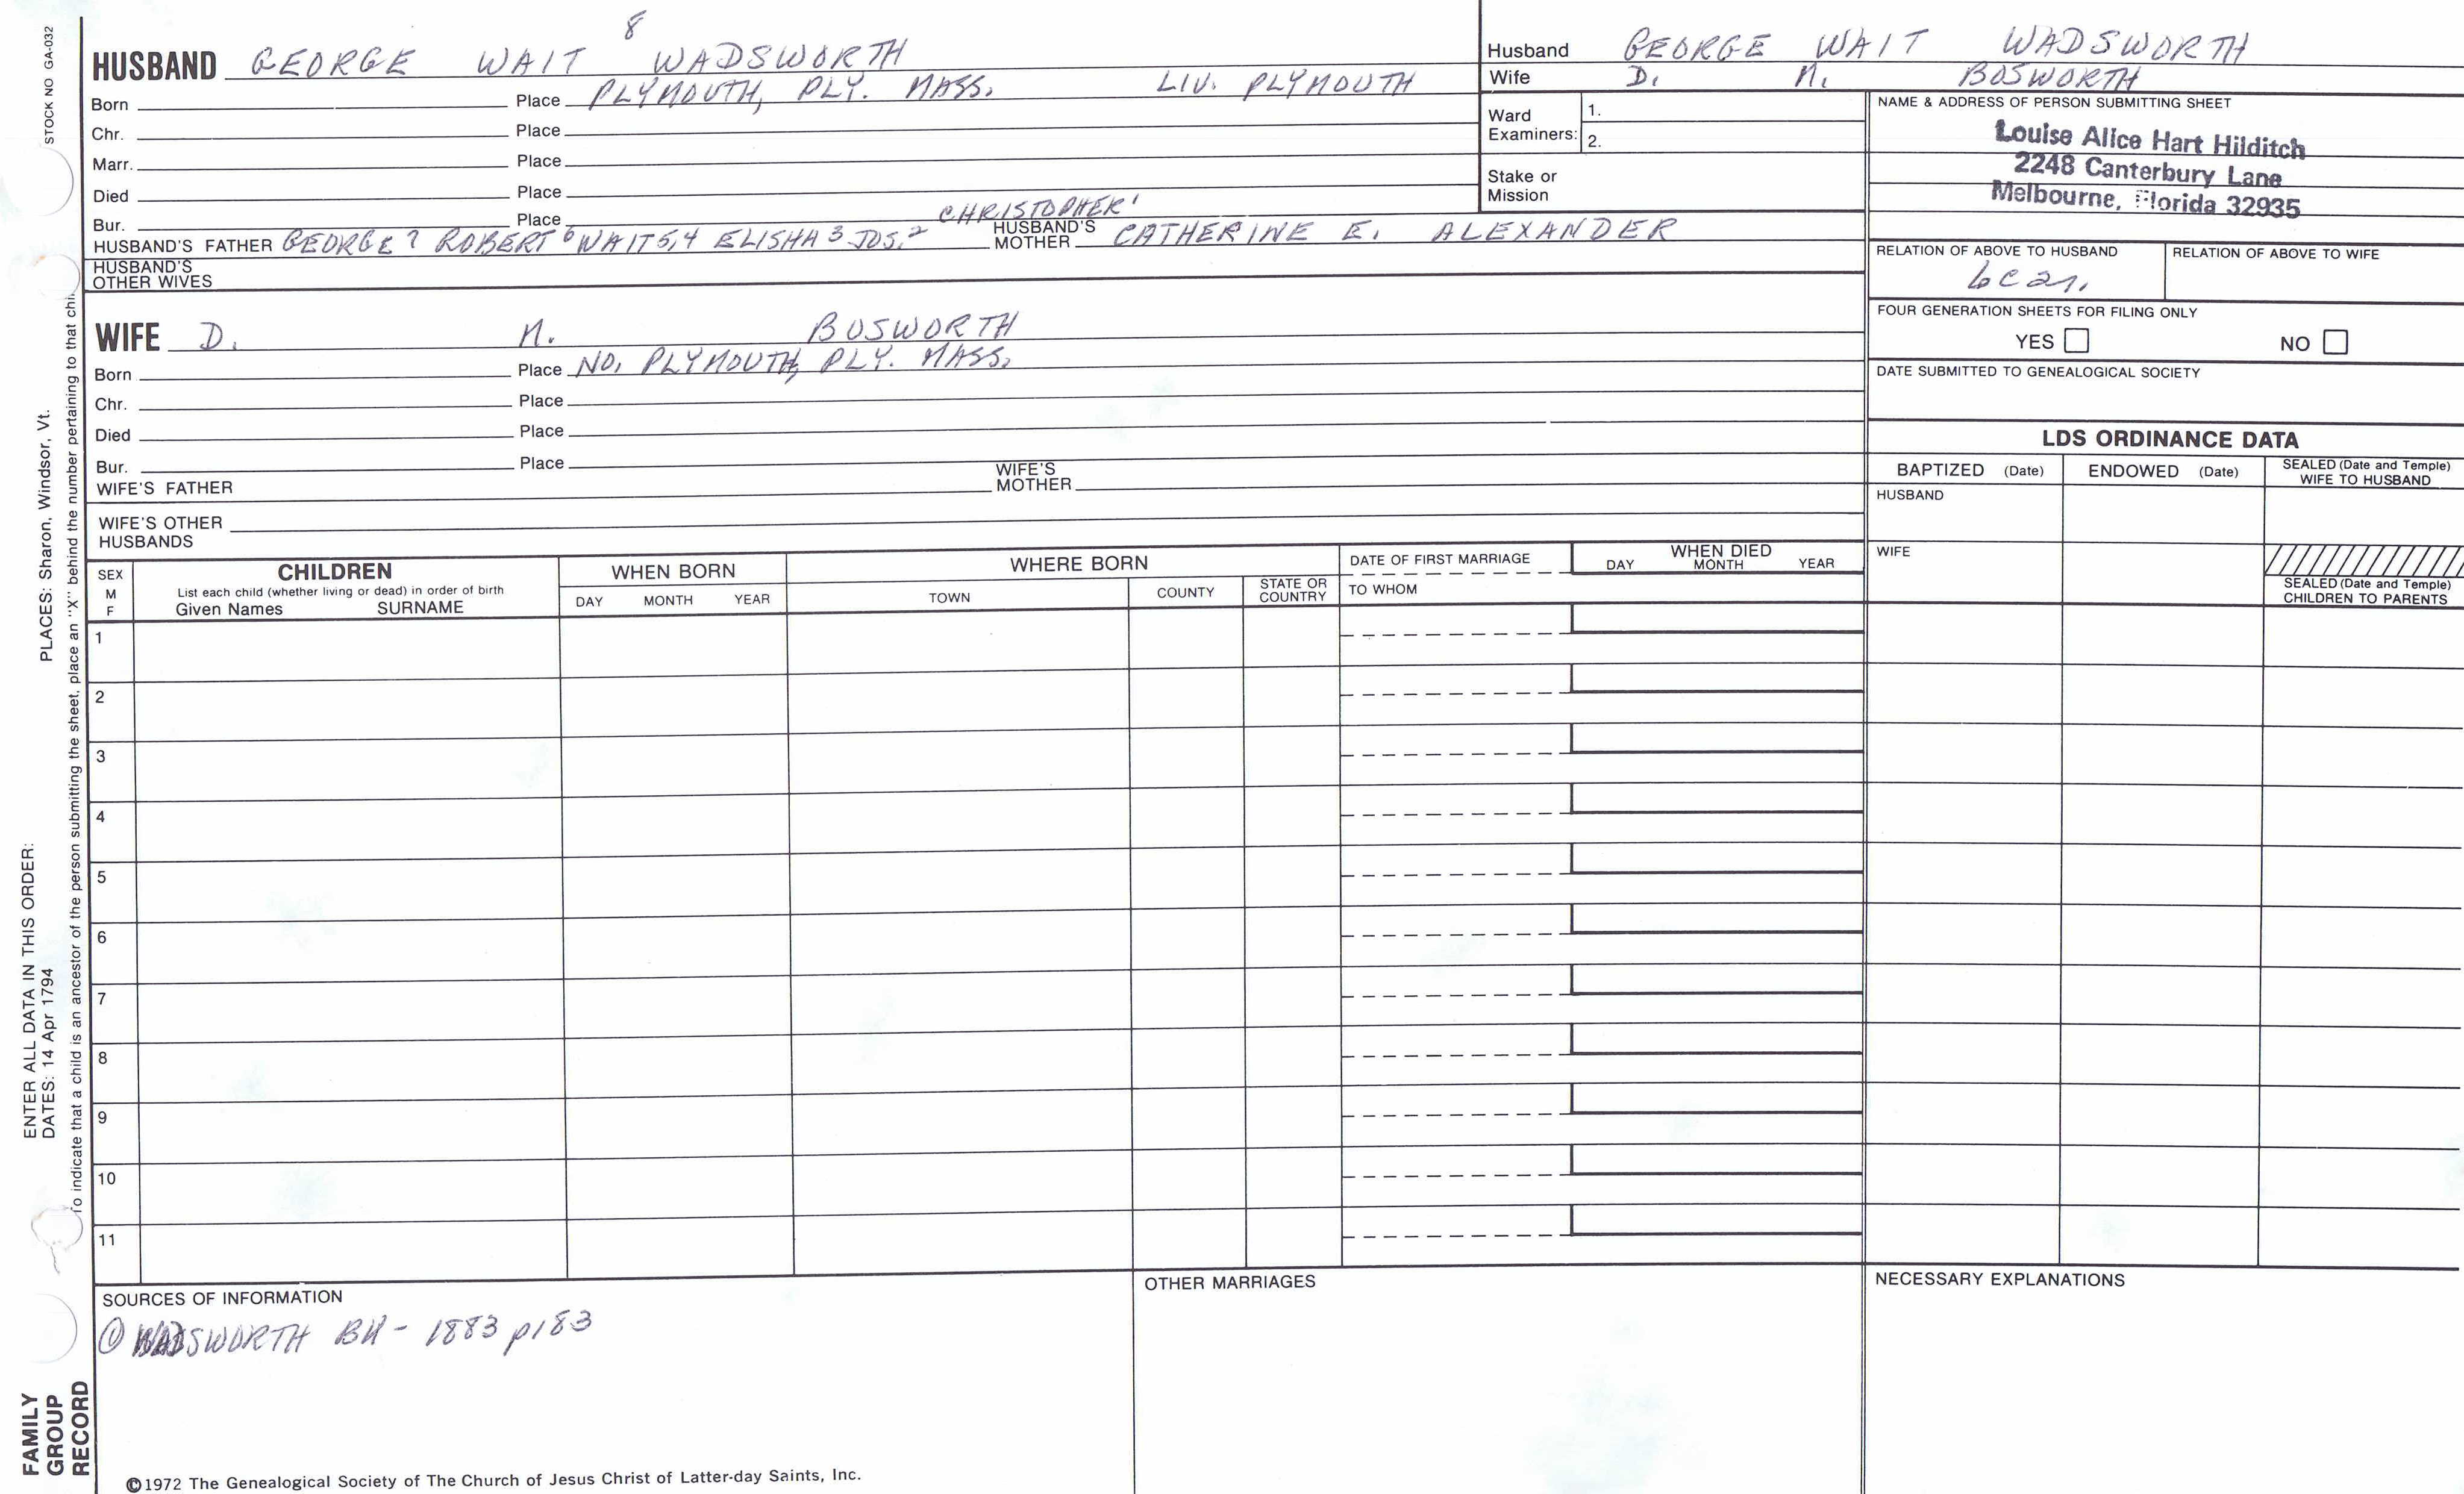 STOCK NO GA-032
HUSBAND GEORGE WAIT 8 WADSWORTH
Born Place PLYMOUTH, PLY. MASS. LIV. PLYMOUTH
Chr. Place
Marr. Place
Died Place
Bur. Place
CHRISTOPHER 1
HUSBAND'S FATHER GEORGE 7 ROBERT 6 WAIT 5,4 ELISHA 3 JOS. 2 HUSBAND'S MOTHER CATHERINE E. ALEXANDER
HUSBAND'S OTHER WIVES
WIFE D. N. BOSWORTH
Born Place NO. PLYMOUTH, PLY. MASS.
Chr. Place
Died Place
Bur. Place
WIFE'S FATHER WIFE'S MOTHER
WIFE'S OTHER HUSBANDS
Husband GEORGE WAIT WADSWORTH
Wife D. N. BOSWORTH
Ward Examiners: 1.
2.
Stake or Mission
NAME & ADDRESS OF PERSON SUBMITTING SHEET
Louise Alice Hart Hilditch
2248 Canterbury Lane
Melbourne, Florida 32935
RELATION OF ABOVE TO HUSBAND RELATION OF ABOVE TO WIFE
6c2r.
FOUR GENERATION SHEETS FOR FILING ONLY
YES NO
DATE SUBMITTED TO GENEALOGICAL SOCIETY
LDS ORDINANCE DATA
BAPTIZED (Date) ENDOWED (Date) SEALED (Date and Temple) WIFE TO HUSBAND
HUSBAND
WIFE
SEALED (Date and Temple) CHILDREN TO PARENTS
SEX M F
CHILDREN
List each child (whether living or dead) in order of birth
Given Names SURNAME
WHEN BORN
DAY MONTH YEAR
WHERE BORN
TOWN COUNTY STATE OR COUNTRY
DATE OF FIRST MARRIAGE
TO WHOM
WHEN DIED
DAY MONTH YEAR
1
2
3
4
5
6
7
8
9
10
11
SOURCES OF INFORMATION
① WADSWORTH BK - 1883 p183
OTHER MARRIAGES
NECESSARY EXPLANATIONS
©1972 The Genealogical Society of The Church of Jesus Christ of Latter-day Saints, Inc.
FAMILY GROUP RECORD
ENTER ALL DATA IN THIS ORDER:
DATES: 14 Apr 1794 PLACES: Sharon, Windsor, Vt.
To indicate that a child is an ancestor of the person submitting the sheet, place an "X" behind the number pertaining to that chi